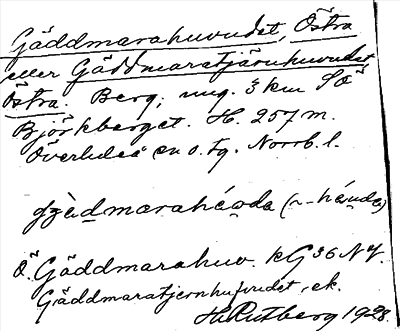 Gäddmarahuvudet, Östra
eller Gäddmaratjärnhuvudet
Östra. Berg, ung. 3 km SÖ
Björkberget. H. 257 m.
Överluleå sn o. tg. Norrb. l.
Ö. Gäddmarahuv. kG 36 NY.
Gäddmaratjernhufvudet, ek.
H. Rutberg 1928.